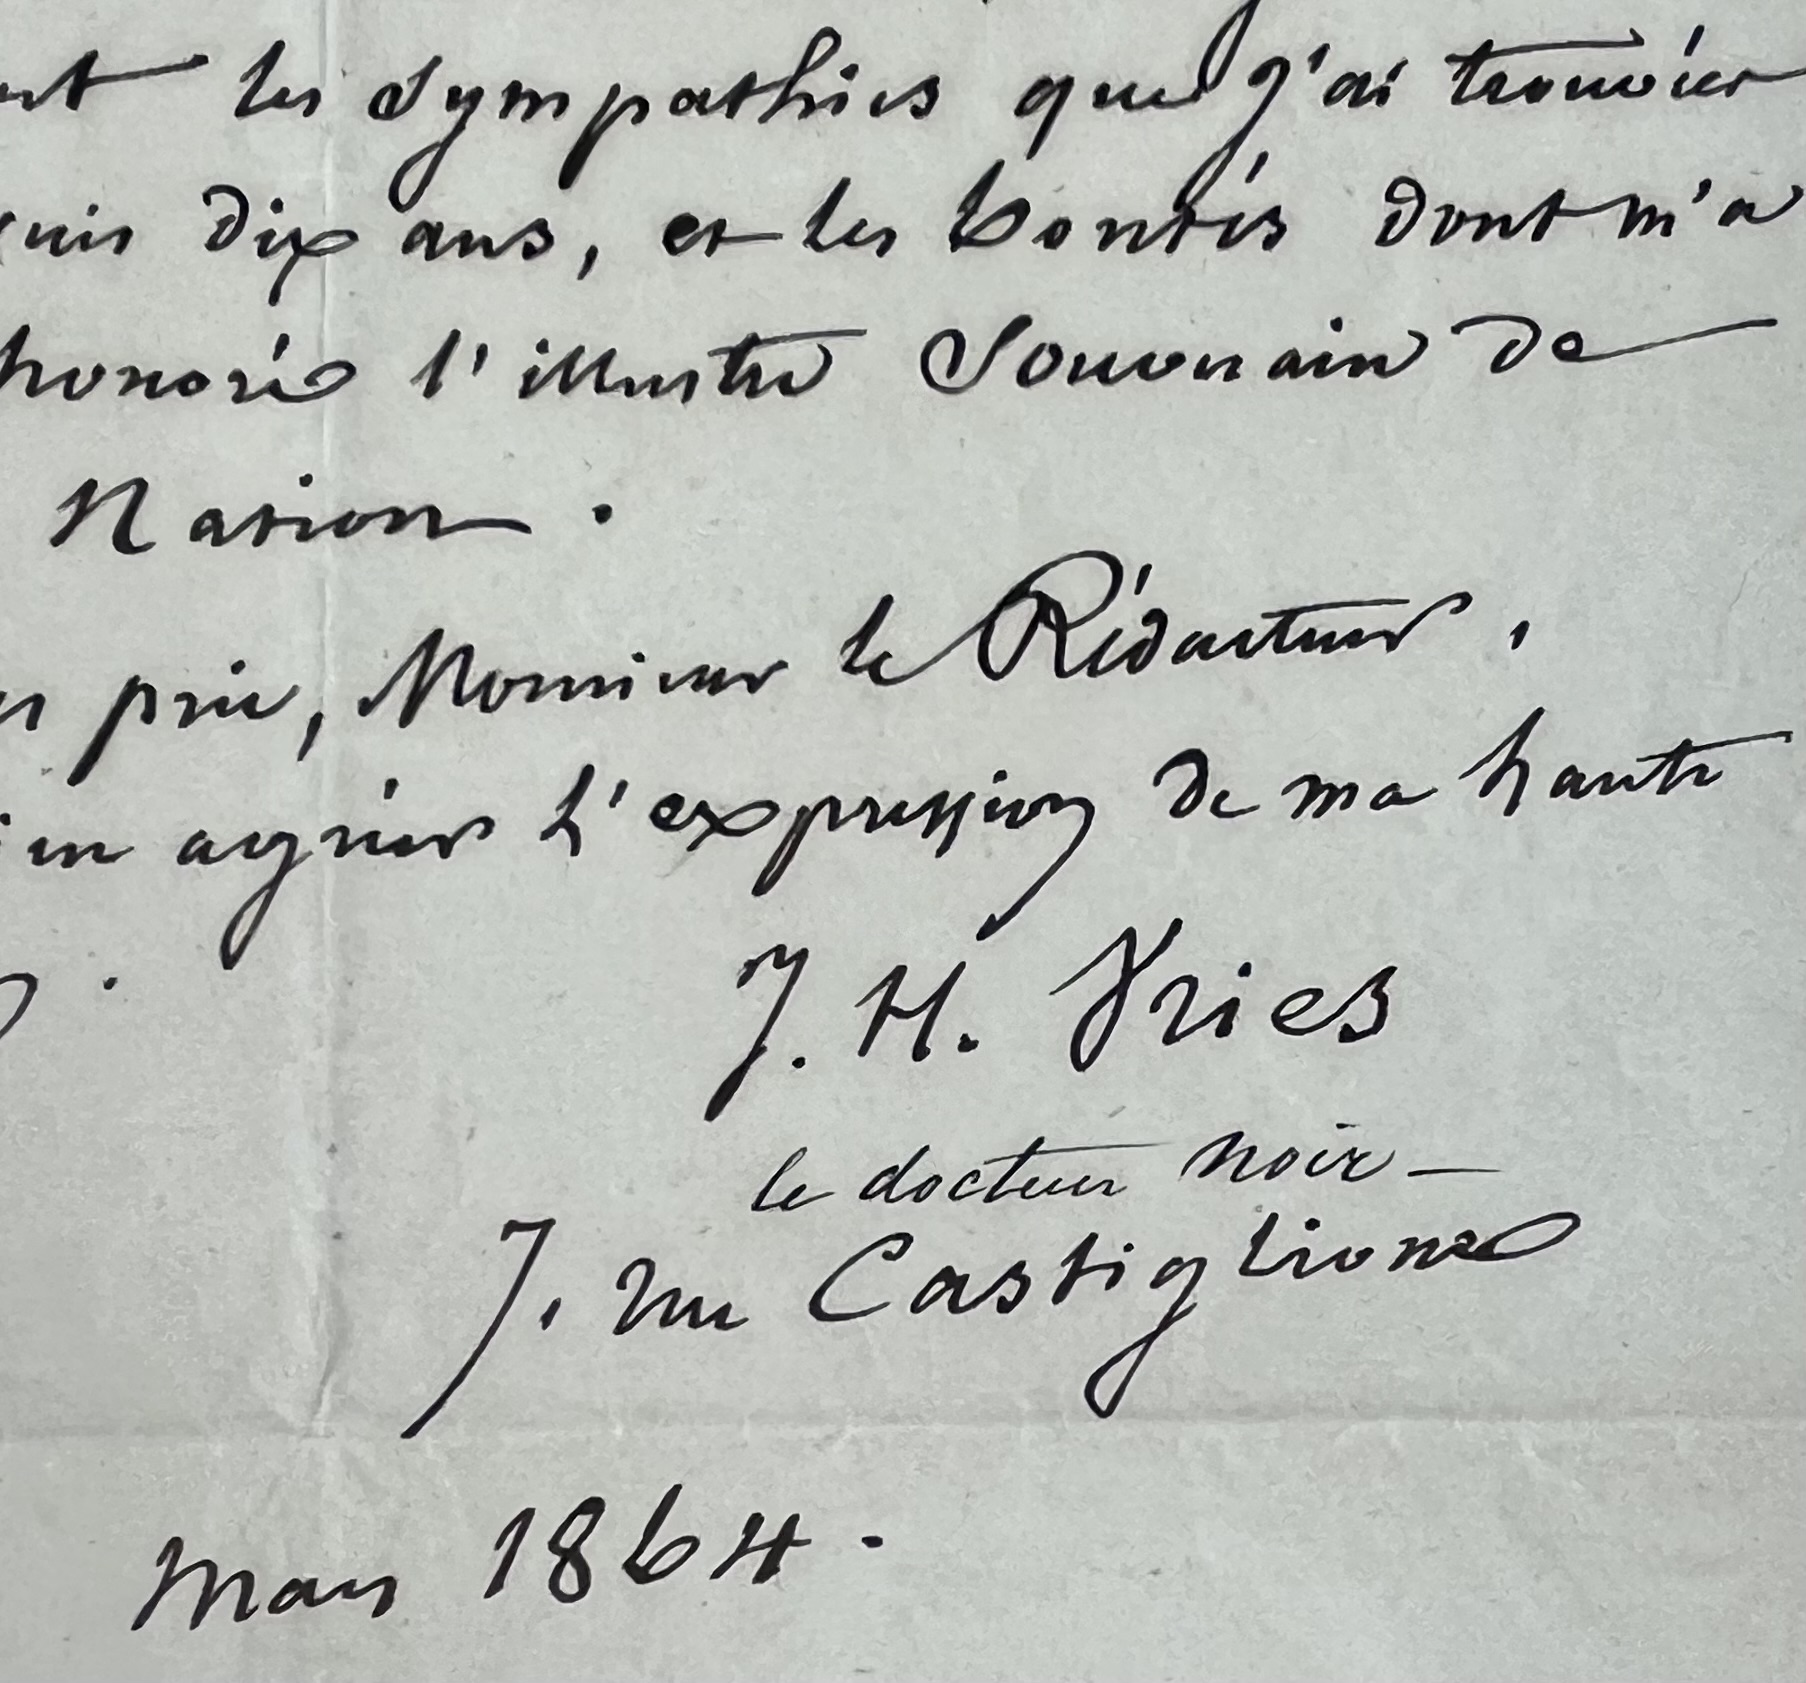 les sympathies que j'ai trouvées
dix ans, et les bontés dont m'a
honoré l'illustre Souverain de
Nation.
prie, Monsieur le Rédacteur,
agréer l'expression de ma haute
J. H. Vries
le docteur noir —
7, rue Castiglione
mars 1864.